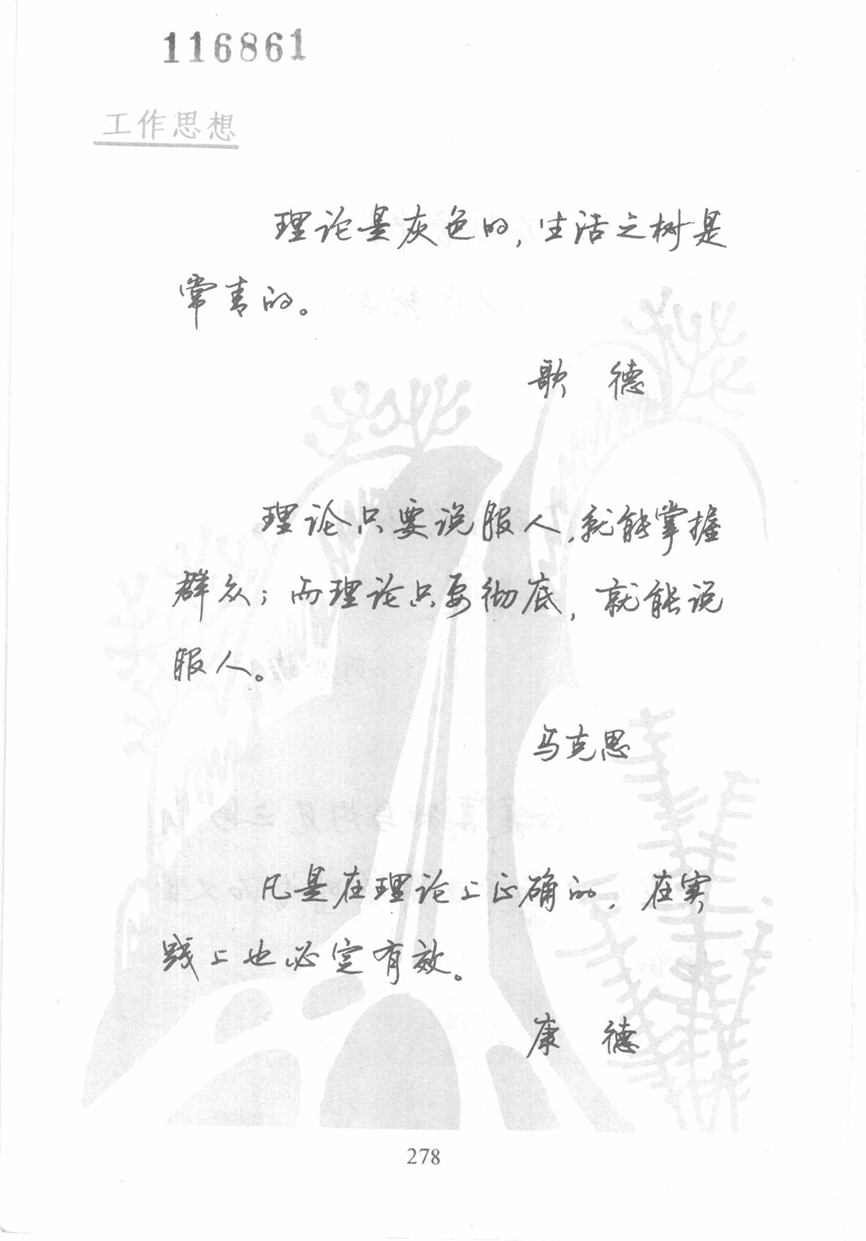 116861
工作思想
理论是灰色的,生活之树是
常青的。
歌 德
理论只要说服人,就能掌握
群众;而理论只要彻底,就能说
服人。
马克思
凡是在理论上正确的,在实
践上也必定有效。
康 德
278